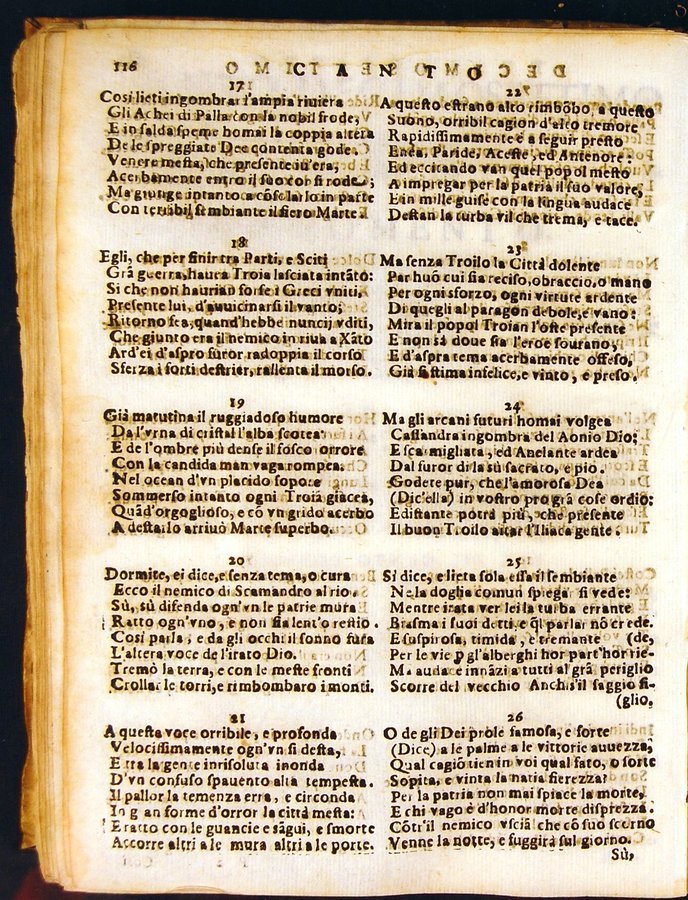 116
CANTO
17
Cosi lieti ingombrar l'ampia riuiera
Gli Achei di Palla con la nobil frode,
E in salda speme homai la coppia altera
De le spreggiate Dee contenta gode.
Venere mesta, che presente iu'era,
Acerbamente entro il suo cor si rode;
Ma giunge intanto a consolarlo in parte
Con terribil sembiante il fiero Marte.
18
Egli, che per finir tra Parti, e Sciti
Grã guerra, hauea Troia lasciata intãto:
Si che non haurian forse i Greci vniti,
Presente lui, d'auuicinarsi il vanto;
Ritorno fea, quand'hebbe nuncij vditi,
Che giunto era il nemico in riua a Xãto
Ard'ei d'aspro furor radoppia il corso
Sferza i forti destrier, rallenta il morso.
19
Già matutina il ruggiadoso humore
Da l'vrna di cristal l'alba scotea:
E de l'ombre più dense il fosco orrore
Con la candida man vaga rompea.
Nel ocean d'vn placido sopore
Sommerso intanto ogni Troia giacea,
Quãd'orgoglioso, e cõ vn grido acerbo
A destarlo arriuò Marte superbo.
20
Dormite, ei dice, e senza tema, o cura
Ecco il nemico di Scamandro al rio.
Sù, sù difenda ogn'vn le patrie mura
Ratto ogn'vno, e non sia lent'o restio.
Cosi parla, e da gli occhi il sonno fura
L'altera voce de l'irato Dio.
Tremò la terra, e con le meste fronti
Crollar le torri, e rimbombaro i monti.
21
A questa voce orribile, e profonda
Velocissimamente ogn'vn si desta,
E tra la gente inrisoluta inonda
D'vn confuso spauento alta tempesta.
Il pallor la temenza erra, e circonda
In gran forme d'orror la città mesta:
E ratto con le guancie esãgui, e smorte
Accorre altri a le mura altri a le porte.
22
A questo estrano alto rimbõbo, a questo
Suono, orribil cagion d'alto tremore
Rapidissimamente a seguir presto
Enea, Paride, Aceste, ed Antenore:
Ed eccitando van quel popol mesto
A impregar per la patria il suo valore,
E in mille guise con la lingua audace
Destan la turba vil che trema, e tace.
23
Ma senza Troilo la Città dolente
Par huõ cui sia reciso, o braccio, o mano
Per ogni sforzo, ogni virtute ardente
Di quegli al paragon debole, e vano:
Mira il popol Troian l'oste presente
E non sà doue sia l'eroe sourano,
E d'aspra tema acerbamente offeso,
Già si stima infelice, e vinto, e preso.
24
Ma gli arcani futuri homai volgea
Cassandra ingombra del Aonio Dio;
E scamigliata, ed Anelante ardea
Dal furor di la sù sacrato, e pio.
Godete pur, che l'amorosa Dea
(Dic'ella) in vostro pro grã cose ordio:
E distante potrà più, che presente
Il buon Troilo aitar l'Iliaca gente.
25
Si dice, e lieta sola essa il sembiante
Ne la doglia comun spiega si vede:
Mentre irata ver lei la turba errante
Biasma i suoi detti, e ql parlar nõ crede.
E suspirosa, timida, e tremante (de,
Per le vie p gl'alberghi hor part'hor rie-
Ma audace innãzi a tutti al grã periglio
Scorre del vecchio Anchis'il saggio fi-
(glio,
26
O de gli Dei prole famosa, e forte
(Dice) a le palme a le vittorie auuezza;
Qual cagiõ tien in voi qual fato, o sorte
Sopita, e vinta la natia fierezza?
Per la patria non mai spiace la morte,
E chi vago è d'honor morte disprezza.
Cõtr'il nemico vsciã che cõ suo scorno
Venne la notte, e fuggirà sul giorno.
Sù,